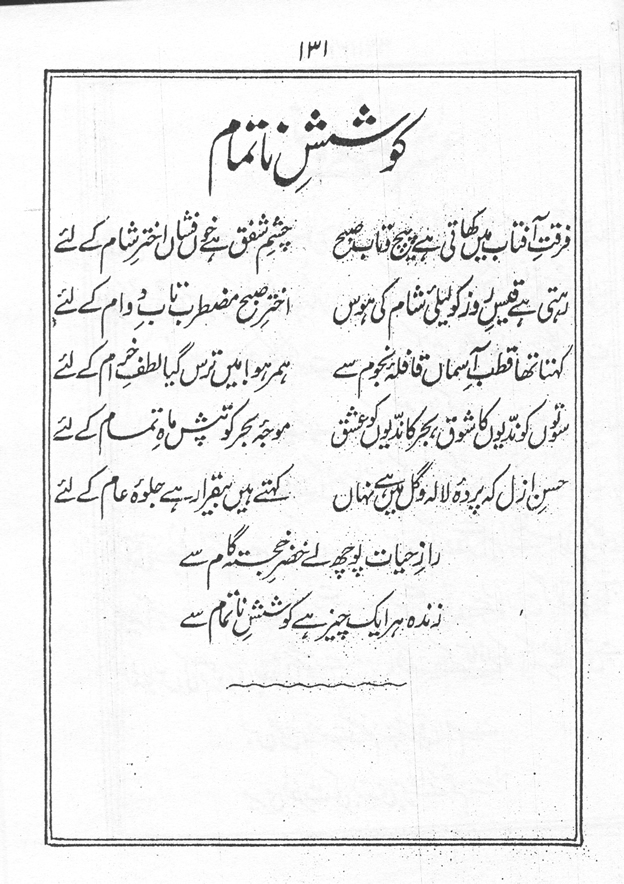 ۱۳۱
کوششِ ناتمام
فرقتِ آفتاب میں کھاتی ہے پیچ و تاب صبح چشمِ شفق ہے خوں فشاں اخترِ شام کے لئے
رہتی ہے قیسِ روز کو لیلیٰ شام کی ہوس اخترِ صبح مضطرب تابِ دوام کے لئے
کہتا تھا قطبِ آسماں قافلۂ نجوم سے ہمرہو! میں ترس گیا لطفِ خرام کے لئے
سوتوں کو ندیوں کا شوق، بحر کا ندیوں کو عشق موجۂ بحر کو تپش ماہِ تمام کے لئے
حسنِ ازل کہ پردۂ لالہ و گل میں ہے نہاں کہتے ہیں بیقرار ہے جلوۂ عام کے لئے
رازِ حیات پوچھ لے خضرِ خجستہ گام سے
زندہ ہر ایک چیز ہے کوششِ ناتمام سے